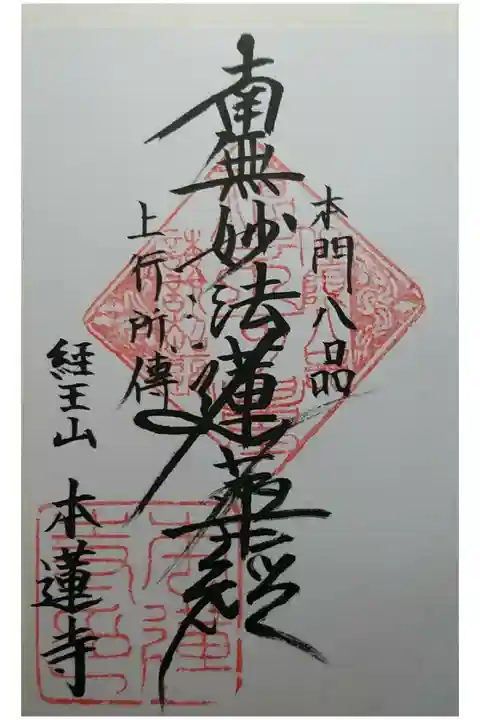 本門八品
南無妙法蓮華経
上行所傳
経王山
本蓮寺